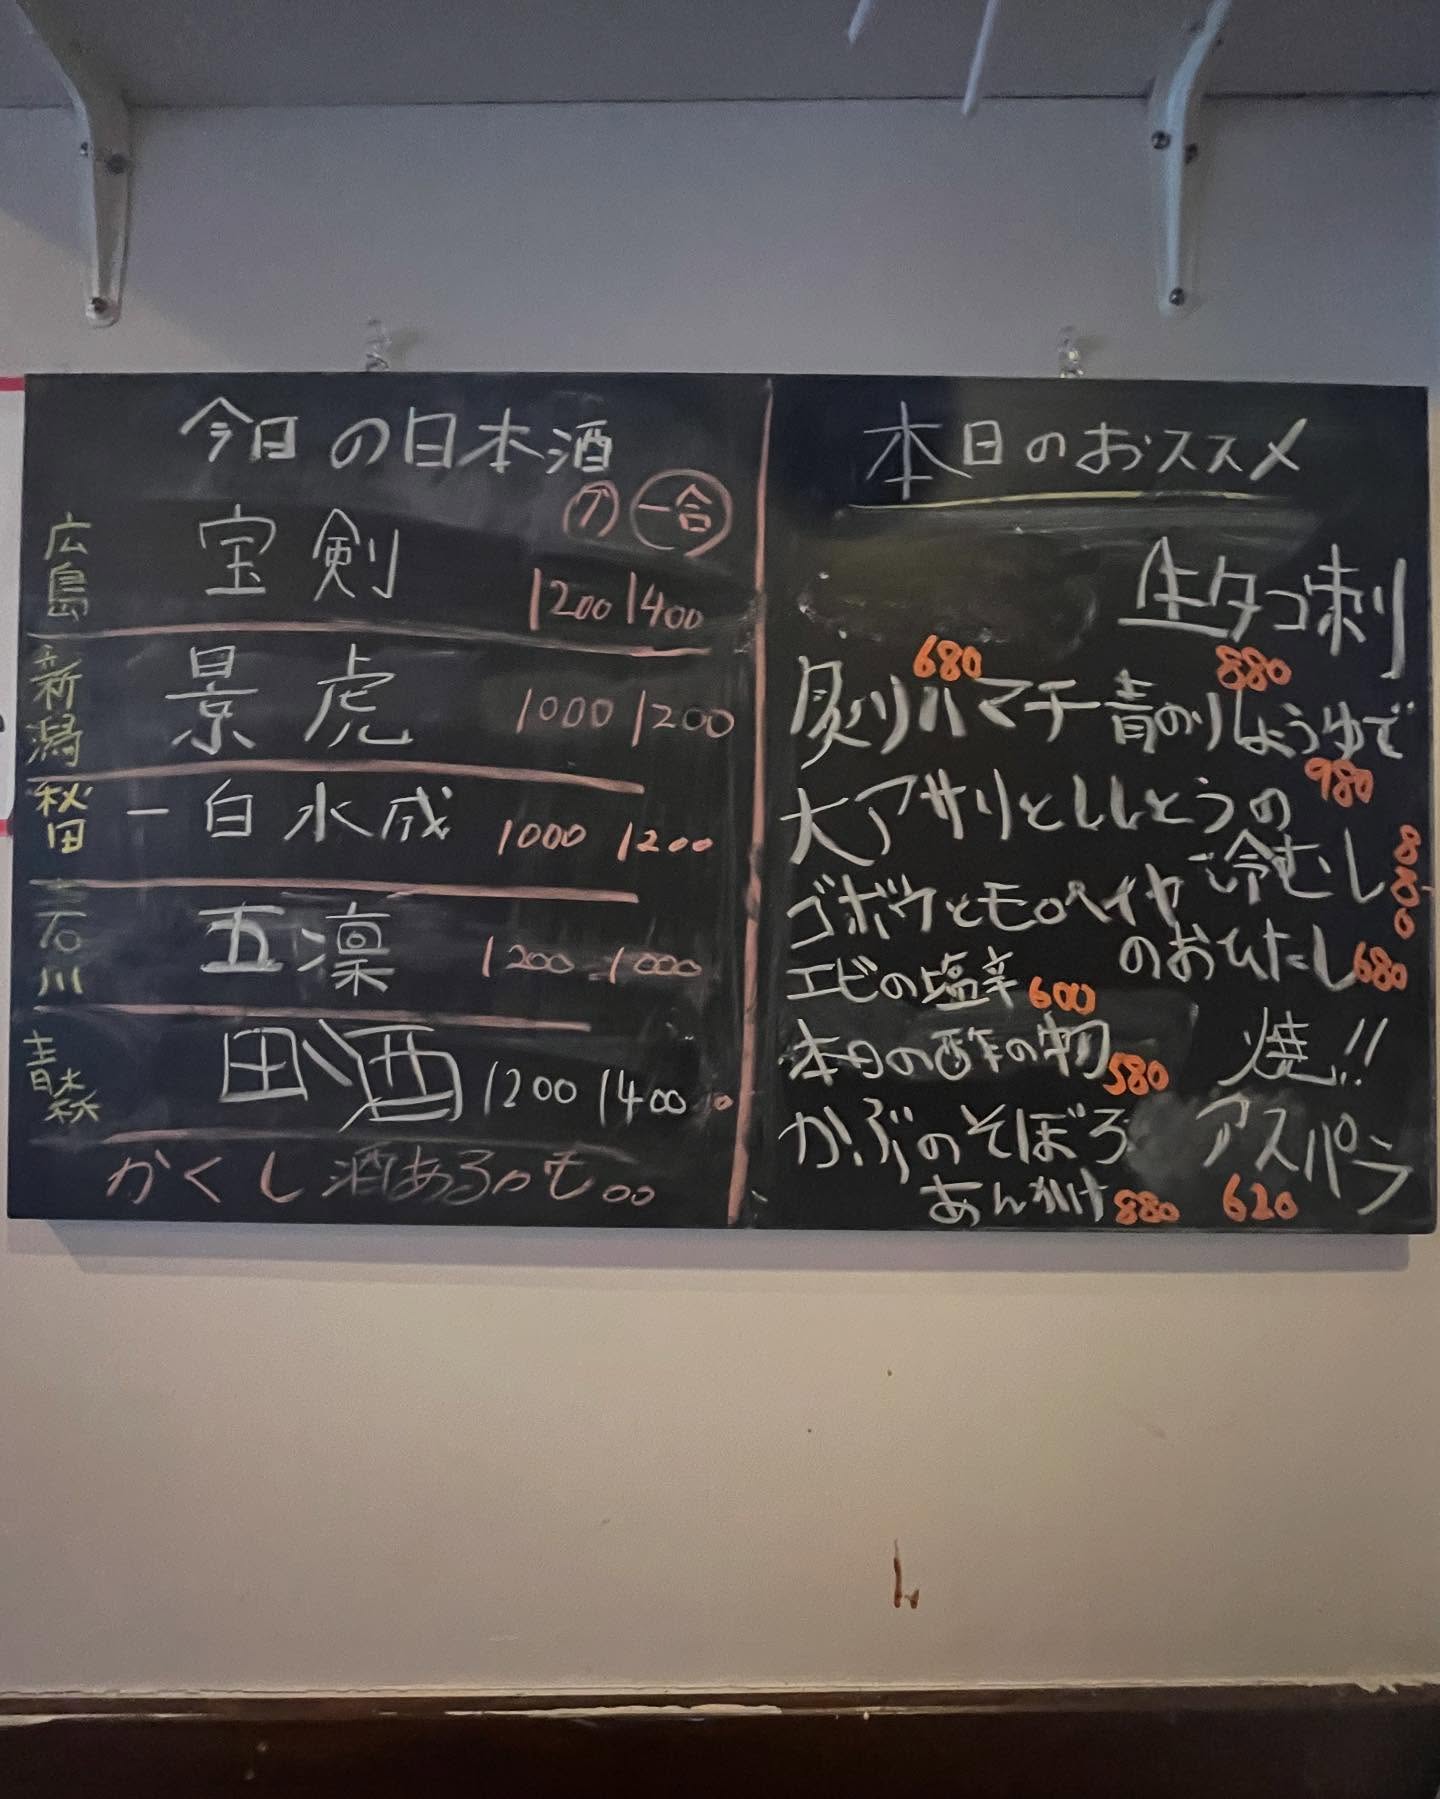 今日の日本酒
グ 一合
広島 宝剣 1200 1400
新潟 景虎 1000 1200
秋田 一白水成 1000 1200
石川 五凛 1200 1000
青森 田酒 1200 1400
かくし酒あるかも。。
本日のおススメ
生タコ刺
680 880
炙りハマチ青のりしょうゆで
980
大アサリとししとうの
冷むし 880
ゴボウとモロヘイヤ
のおひたし 680
エビの塩辛 600
本日の酢の物 580
焼!!
アスパラ
620
かぶのそぼろ
あんかけ 880